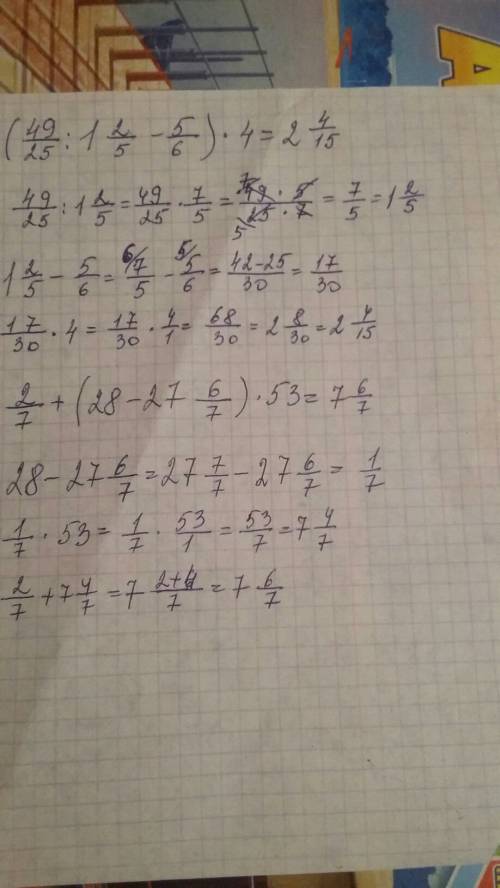 (49/25 : 1 2/5 - 5/6) · 4 = 2 4/15
49/25 : 1 2/5 = 49/25 · 7/5 = 49 · 5/25 · 7 = 7/5 = 1 2/5
1 2/5 - 5/6 = 7/5 - 5/6 = 42-25/30 = 17/30
17/30 · 4 = 17/30 · 4/1 = 68/30 = 2 8/30 = 2 4/15
2/7 + (28 - 27 6/7) · 53 = 7 6/7
28 - 27 6/7 = 27 7/7 - 27 6/7 = 1/7
1/7 · 53 = 1/7 · 53/1 = 53/7 = 7 4/7
2/7 + 7 4/7 = 7 2+4/7 = 7 6/7